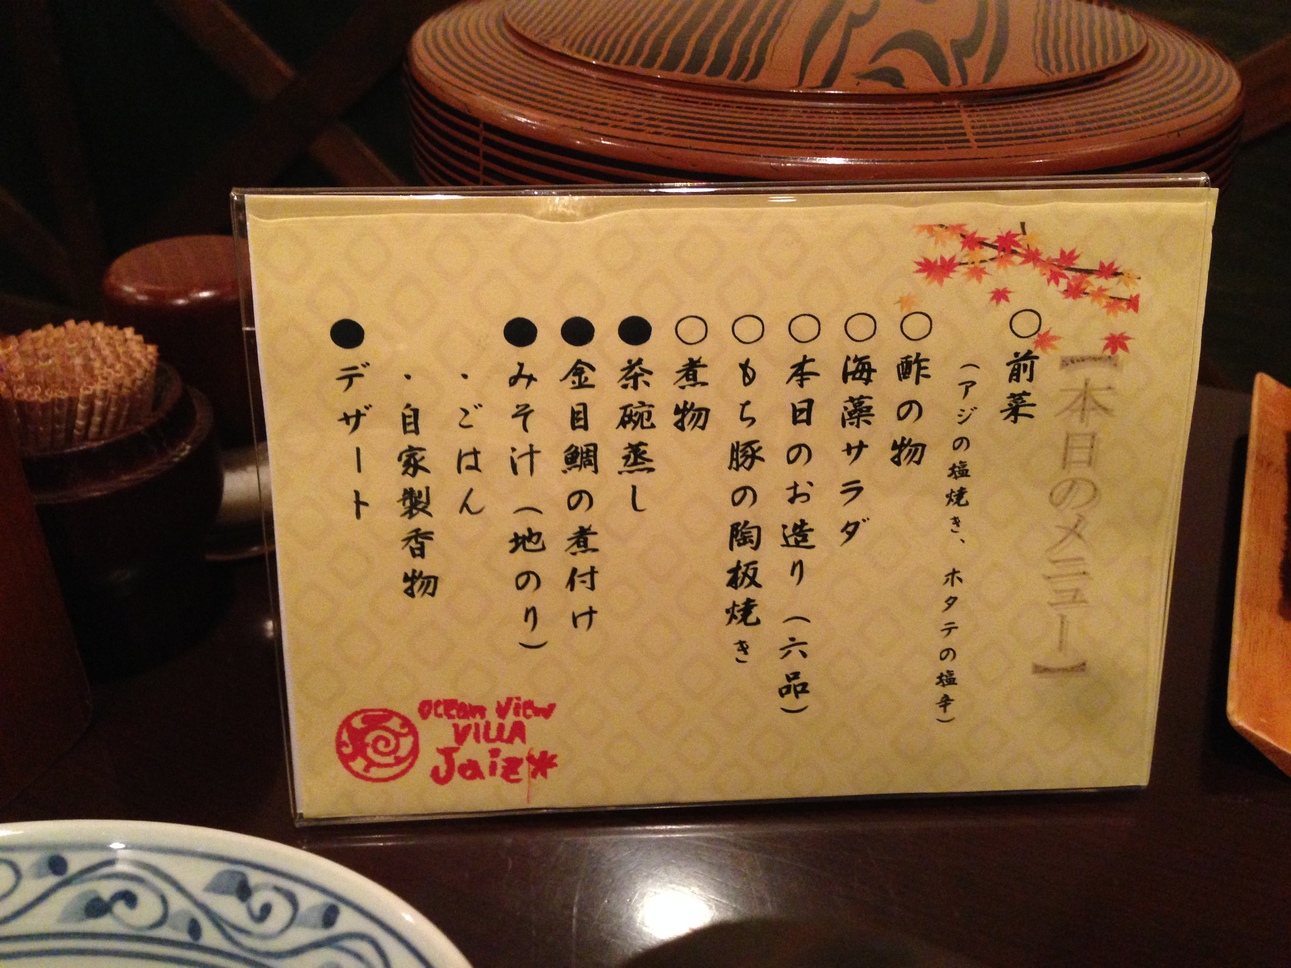 【本日のメニュー】
○前菜
（アジの塩焼き、ホタテの塩辛）
○酢の物
○海藻サラダ
○本日のお造り（六品）
○もち豚の陶板焼き
○煮物
●茶碗蒸し
●金目鯛の煮付け
●みそ汁（地のり）
・ごはん
・自家製香物
●デザート
ocean View
VILLA
Jaiz*